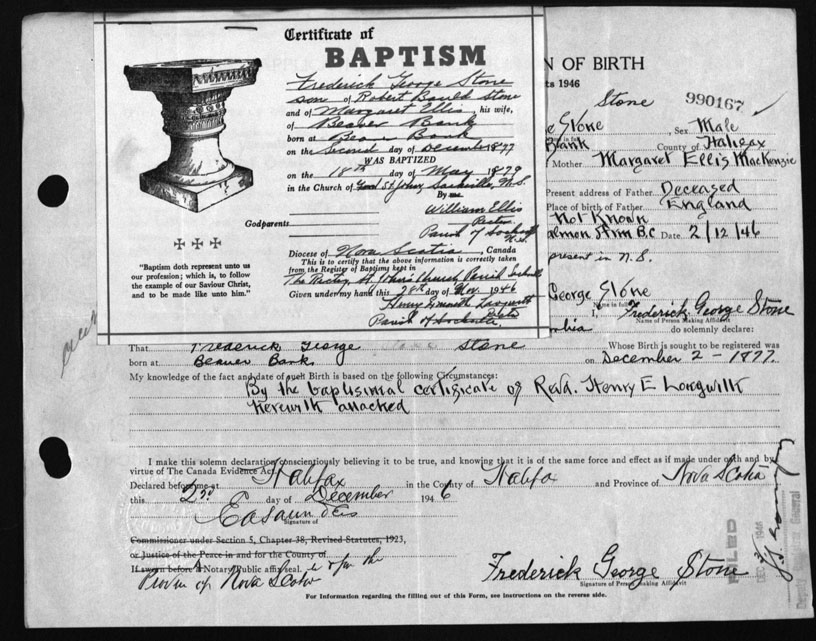 Certificate of
BAPTISM
Frederick George Stone
son of Robert Bauld Stone
and of Margaret Ellis, his wife,
of Beaver Bank
born at Beaver Bank
on the Second day of December 1877
WAS BAPTIZED
on the 18th day of May 1879
in the Church of St John Sackville N.S.
By me
William Ellis
Rector
Godparents
Parish of Sackville
N.S.
Diocese of Nova Scotia, Canada
This is to certify that the above information is correctly taken
from the Register of Baptisms kept in
The Rectory St John's Church Parish Sackville
Given under my hand this 28th day of Nov. 1946
Henry
Parish of Sackville
"Baptism doth represent unto us
our profession; which is, to follow
the example of our Saviour Christ,
and to be made like unto him."
N OF BIRTH
ts 1946
Stone 990167
e Stone, Sex Male
Bank County of Halifax
Mother Margaret Ellis MacKenzie
Present address of Father Deceased
Place of birth of Father England
Not Known
almon Arm B.C Date 2/12/46
present in N.S.
George Stone
Name in full
I, Frederick George Stone
Name of Person Making Affidavit
mbia do solemnly declare:
That Frederick George Stone Whose Birth is sought to be registered was
born at Beaver Bank on December 2-1877.
My knowledge of the fact and date of such Birth is based on the following Circumstances:
By the baptismal certificate of Revd. Henry E
herewith attacked
I make this solemn declaration conscientiously believing it to be true, and knowing that it is of the same force and effect as if made under oath and by
virtue of The Canada Evidence Act.
Declared before me at Halifax in the County of Halifax and Province of Nova Scotia
this 2nd day of December 1946
Signature of
Commissioner under Section 5, Chapter 38, Revised Statutes, 1923,
or Justice of the Peace in and for the County of
If sworn before A Notary Public affix seal. in & for the
Province of Nova Scotia
Frederick George Stone
Signature of Person Making Affidavit
For Information regarding the filling out of this Form, see instructions on the reverse side.
FILED
DEC 1946
Deputy Registrar General